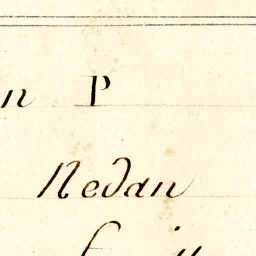 n P
Redan